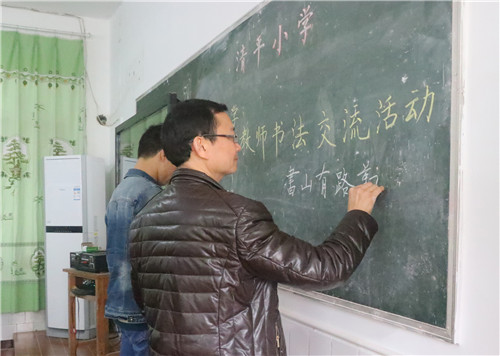 清平小学
教师书法交流活动
書山有路